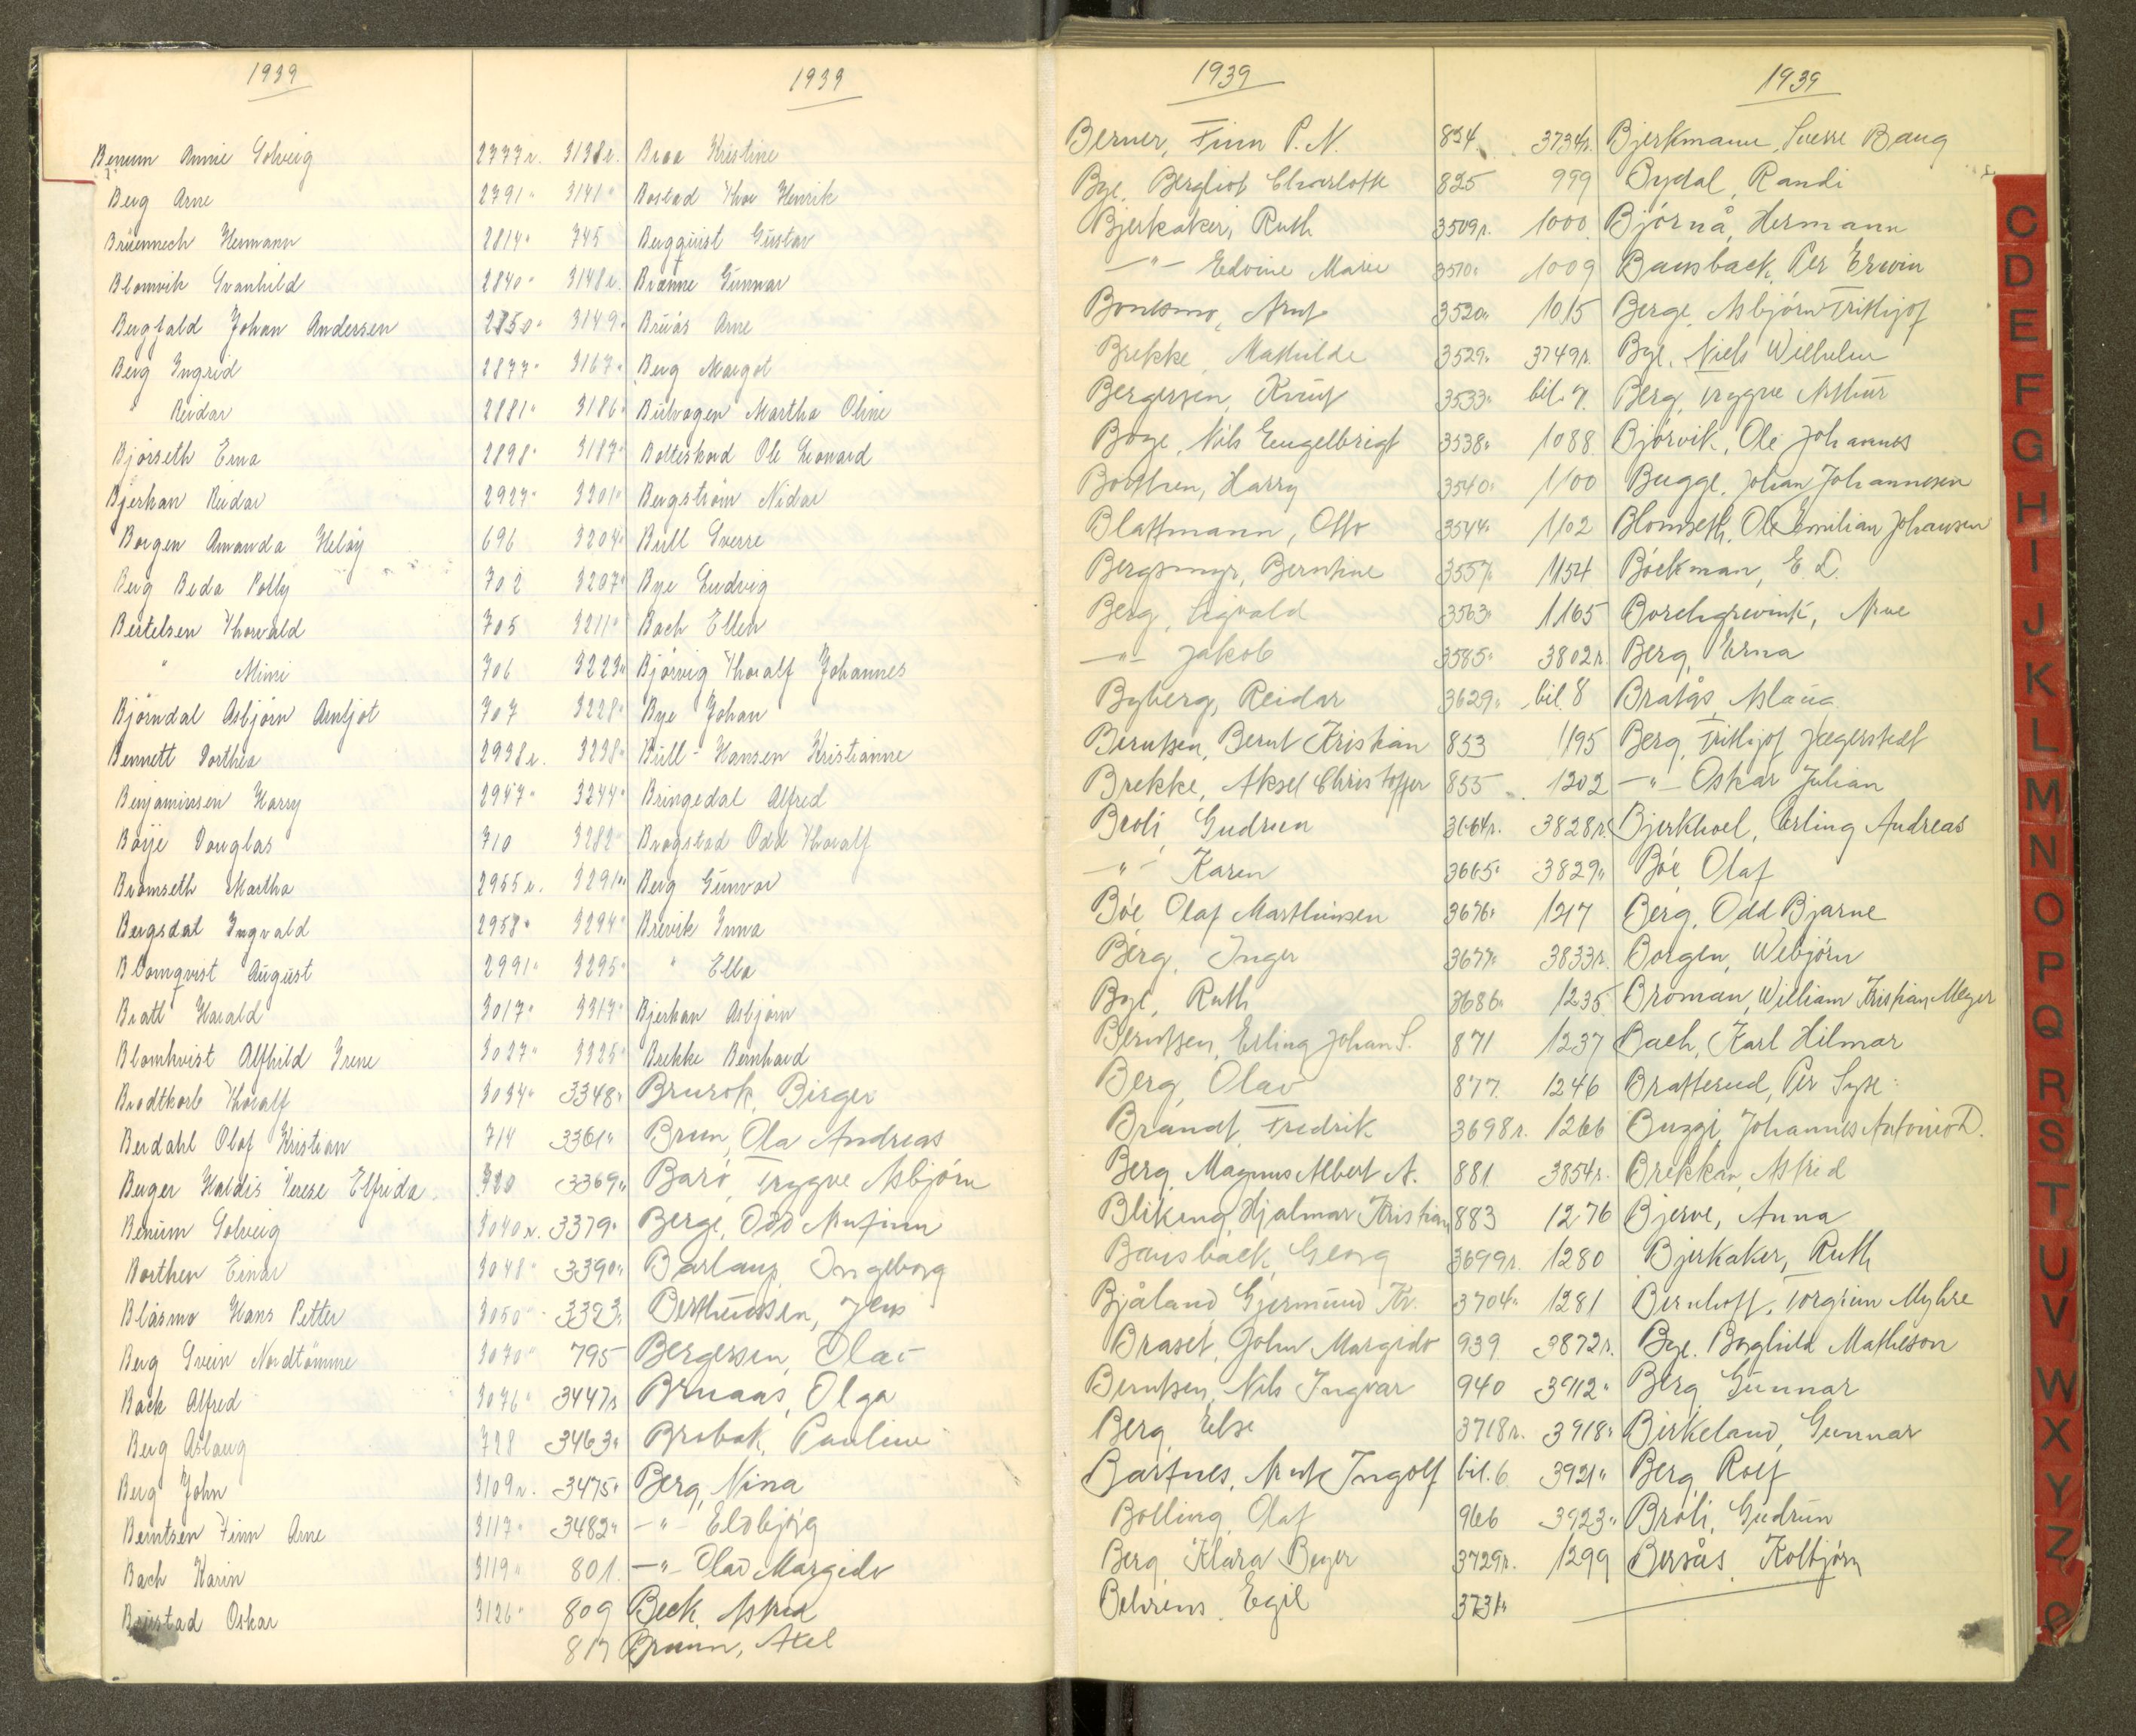 1939
1939
Benum Annie Solveig 2777 r. 3138 r. Braa Kristine
Berg Arne 2791 " 3141 " Bostad Thor Henrik
Brüennech Hermann 2814 " 745 Bergquist Gustav
Blomvik Svanhild 2840 " 3148 r. Brænne Gunnar
Bergfald Johan Andersen 2850 " 3149 " Bruås Arne
Berg Ingrid 2877 " 3167 " Berg Margot
" Reidar 2881 " 3186 " Martha Oline
Bjørseth Erna 2898 " 3187 " Ole Leonard
Bjerkan Reidar 2927 " 3201 " Bergstrøm Nidar
Borgen Amanda Heløy 696 3204 " Bull Sverre
Berg Beda Polly 702 3207 " Bye Ludvig
Bertelsen Thorvald 705 3211 " Bach Ellen
" Mimi 706 3223 " Bjørvig Thoralf Johannes
Bjørndal Asbjørn Arntjot 707 3228 " Bye Johan
Bennett Dorthea 2938 r. 3238 " Bull-Hansen Kristianne
Benjaminsen Harry 2947 " 3244 " Bringedal Alfred
Bøije Douglas 710 3282 " Brogstad Odd Thoralf
Bromseth Martha 2955 r. 3291 " Berg Gunvor
Bergsdal Ingvald 2958 " 3294 " Brevik Inna
Blomqvist August 2991 " 3295 " " Ella
Bratt Harald 3017 " 3317 " Bjerkan Asbjørn
Blomkvist Alfhild Irene 3027 " 3325 " Brekke Bernhard
Brodtkorb Thoralf 3034 " 3348 " Brurok, Birger
Berdahl Olaf Kristian 714 3361 " Brun, Ola Andreas
Berger Haldis Verese Elfrida 720 3369 " Barø, Trygve Asbjørn
Benum Solveig 3040 r. 3379 " Berge, Odd Arnfinn
Borthen Einar 3048 " 3390 " Barlaup, Ingeborg
Blåsmo Hans Petter 3050 " 3393 " Berthinussen, Jens
Berg Svein Nordtømme 3070 " 795 Bergersen, Olav
Back Alfred 3076 " 3447 r Bruaas, Olga
Berg Aslaug 728 3463 " Brobak, Pauline
Berg John 3109 r. 3475 " Berg, Nina
Berntsen Finn Arne 3117 " 3482 " -"- Eldbjørg
Bach Karin 3119 " 801. -"- Olav Margido
Oskar 3126 " 809 Beck, Astrid
817 Bruun, Axel
1939
1939
Berner, Finn P. N. 824 3734 r. Bjerkmann, Sverre Baug
Bye, Bergliot Charlotte 825 999 Bydal, Randi
Bjerkaker, Ruth 3509 r. 1000 Bjørnå, Hermann
-"- Edvine Marie 3510 " 1009 Bausback, Per Erwin
Bonesmo, Arnt 3520 " 1015 Berge, Asbjørn Frithjof
Brekke, Mathilde 3529 " 3749 r. Bye, Niels Wilhelm
Bergersen, Knut 3533 " bil. 7. Berg, Trygve Arthur
Boye, Nils Engelbrigt 3538 " 1088 Bjørvik, Ole Johannes
Borthen, Harry 3540 " 1100 Bugge, Johan Johannesen
Blattmann, Otto 3544 " 1102 Blomseth, Ole Emilian Johansen
Bergsmyr, Berntine 3557 " 1154 Bøckman, E. D.
Berg, Sigvald 3563 " 1165 Borchgrevink, Arve
-"- Jakob 3585 " 3802 r. Berg, Erna
Byberg, Reidar 3629 " bil. 8 Bratås, Aslaug
Berntsen, Bernt Kristian 853 1195 Berg, Frithjof Jægerstedt
Brekke, Aksel Christoffer 855 1202 -"- Oskar Julian
Broli, Gudrun 3664 r. 3828 r. Bjerkhoel, Erling Andreas
-"- Karen 3665 " 3829 " Bøe Olaf
Bøe Olaf Marthinsen 3676 " 1217 Berg, Odd Bjarne
Berg, Inger 3677 " 3833 r. Borgen, Webjørn
Bye, Ruth 3686 " 1235 Broman, William Kristian Meyer
Berntsen, Erling Johan S. 871 1237 Bach, Karl Hilmar
Berg, Olav 877 1246 Bratterud, Per
Brandt, Fredrik 3698 r. 1266 Buzzi, Johannes Antonio D.
Berg, Magnus Albert A. 881 3854 r. Brekkan, Astrid
Blikeng, Hjalmar Kristian 883 1276 Bjerve, Anna
Bausback, Georg 3699 r. 1280 Bjerkaker, Ruth
Bjåland, Gjermund Kr. 3704 " 1281 Bernhoft, Torgrim Myhre
Braset, John Margido 939 3872 r. Bye, Borghild Matheson
Berntsen, Nils Ingvar 940 3912 " Berg, Gunnar
Berg, Else 3718 r. 3918 " Birkeland, Gunnar
Bartnes, Arnt Ingolf bil. 6 3921 " Berg, Rolf
Bolling, Olaf 966 3923 " Broli, Gudrun
Berg, Klara Beyer 3729 r. 1299 Bersås, Kolbjørn
Behrens, Egil 3731 "
C
D
E
F
G
H
I
J
K
L
M
N
O
P
Q
R
S
T
U
V
W
X
Y
Z